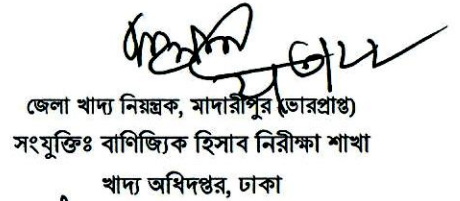 জেলা খাদ্য নিয়ন্ত্রক, মাদারীপুর (ভারপ্রাপ্ত)
সংযুক্তিঃ বাণিজ্যিক হিসাব নিরীক্ষা শাখা
খাদ্য অধিদপ্তর, ঢাকা